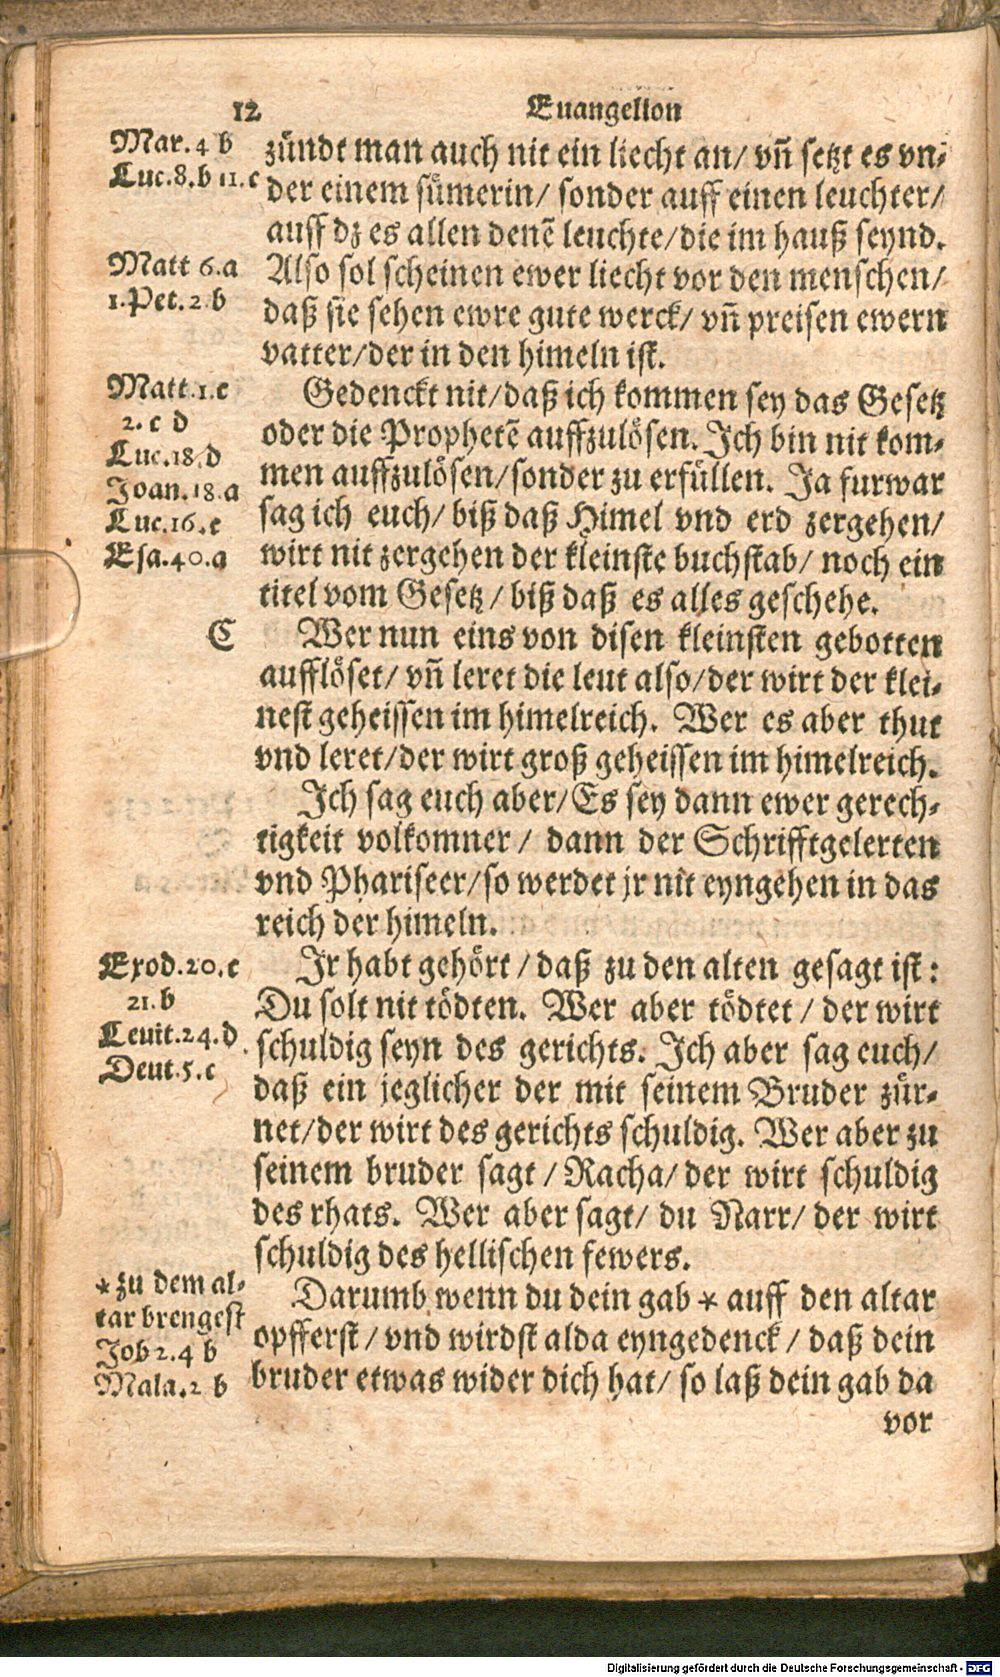 12 Euangelion
Mar. 4 b
Luc. 8. b 11. c
zündt man auch nit ein liecht an/ vñ setzt es vn⸗
der einem sümerin/ sonder auff einen leuchter/
auff dz es allen denē leuchte/ die im hauß seynd.
Matt 6. a
1. Pet. 2 b
Also sol scheinen ewer liecht vor den menschen/
daß sie sehen ewre gute werck/ vñ preisen ewern
vatter/ der in den himeln ist.
Matt. 1. c
2. c d
Luc. 18. d
Joan. 18. a
Luc. 16. e
Esa. 40. a
Gedenckt nit/ daß ich kommen sey das Gesetz
oder die Prophetē auffzulösen. Ich bin nit kom⸗
men auffzulösen/ sonder zu erfüllen. Ja furwar
sag ich euch/ biß daß Himel vnd erd zergehen/
wirt nit zergehen der kleinste buchstab/ noch ein
titel vom Gesetz/ biß daß es alles geschehe.
C
Wer nun eins von disen kleinsten gebotten
aufflöset/ vñ leret die leut also/ der wirt der klei⸗
nest geheissen im himelreich. Wer es aber thut
vnd leret/ der wirt groß geheissen im himelreich.
Ich sag euch aber/ Es sey dann ewer gerech⸗
tigkeit volkomner/ dann der Schrifftgelerten
vnd Phariseer/ so werdet jr nit eyngehen in das
reich der himeln.
Exod. 20. c
21. b
Leuit. 24. d
Deut. 5. c
Ir habt gehört/ daß zu den alten gesagt ist:
Du solt nit tödten. Wer aber tödtet/ der wirt
schuldig seyn des gerichts. Ich aber sag euch/
daß ein jeglicher der mit seinem Bruder zür⸗
net/ der wirt des gerichts schuldig. Wer aber zu
seinem bruder sagt/ Racha/ der wirt schuldig
des rhats. Wer aber sagt/ du Narr/ der wirt
schuldig des hellischen fewers.
* zu dem al⸗
tar brengest
Job 2. 4 b
Mala. 2 b
Darumb wenn du dein gab * auff den altar
opfferst/ vnd wirdst alda eyngedenck/ daß dein
bruder etwas wider dich hat/ so laß dein gab da
vor
Digitalisierung gefördert durch die Deutsche Forschungsgemeinschaft - DFG